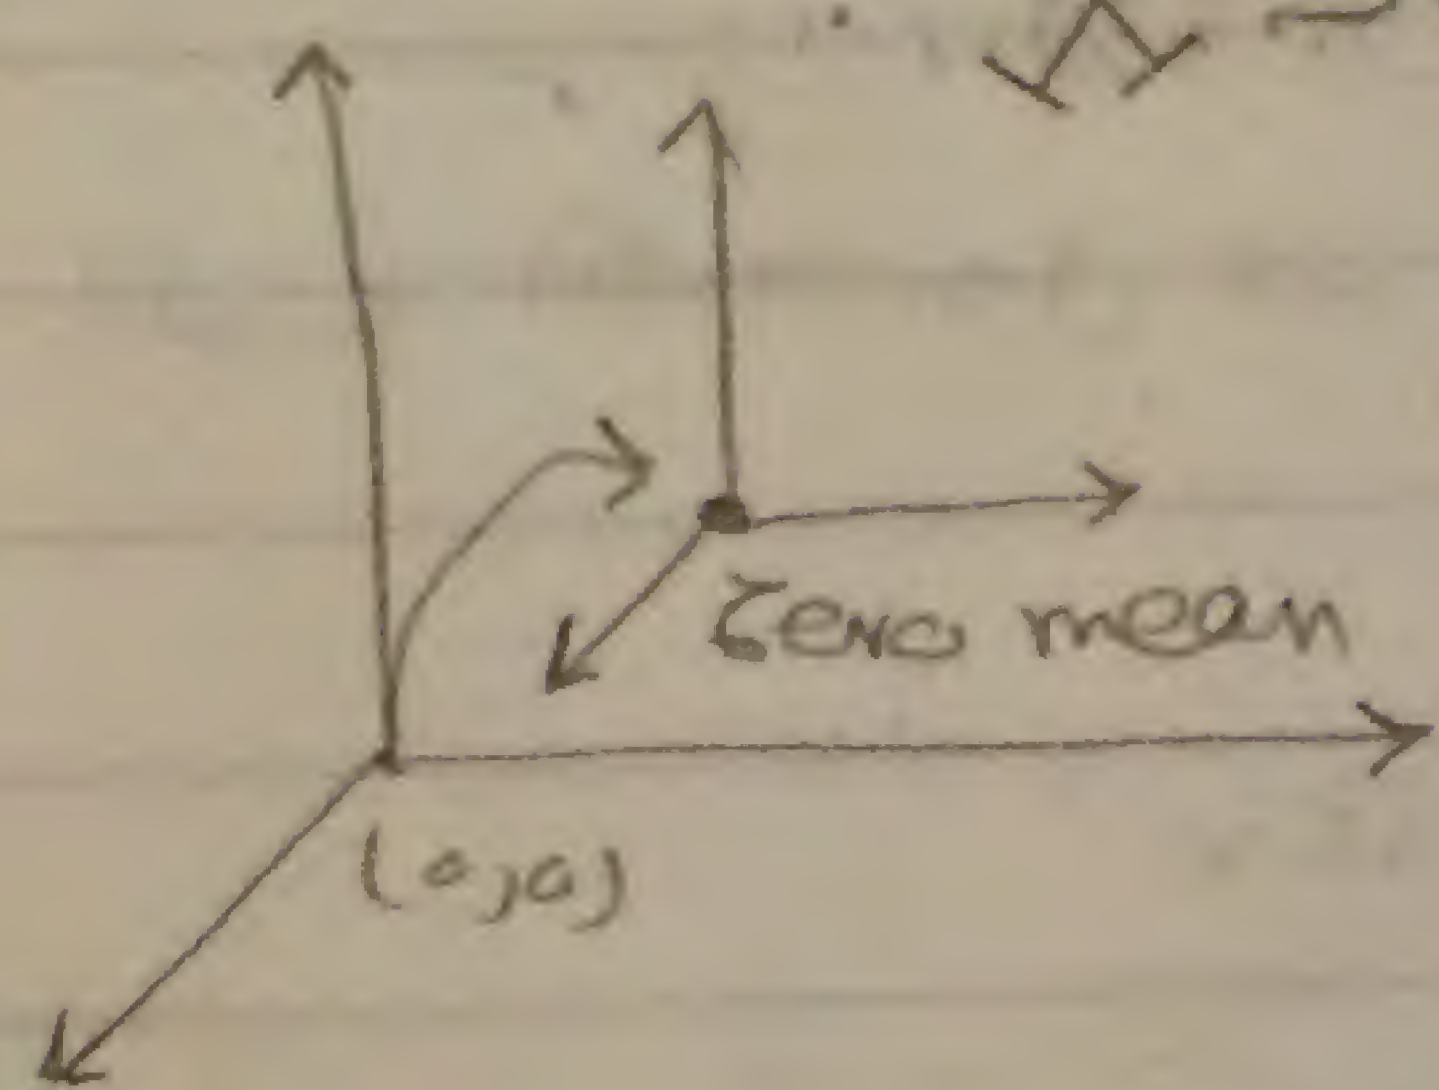 Zero mean
(0,0)